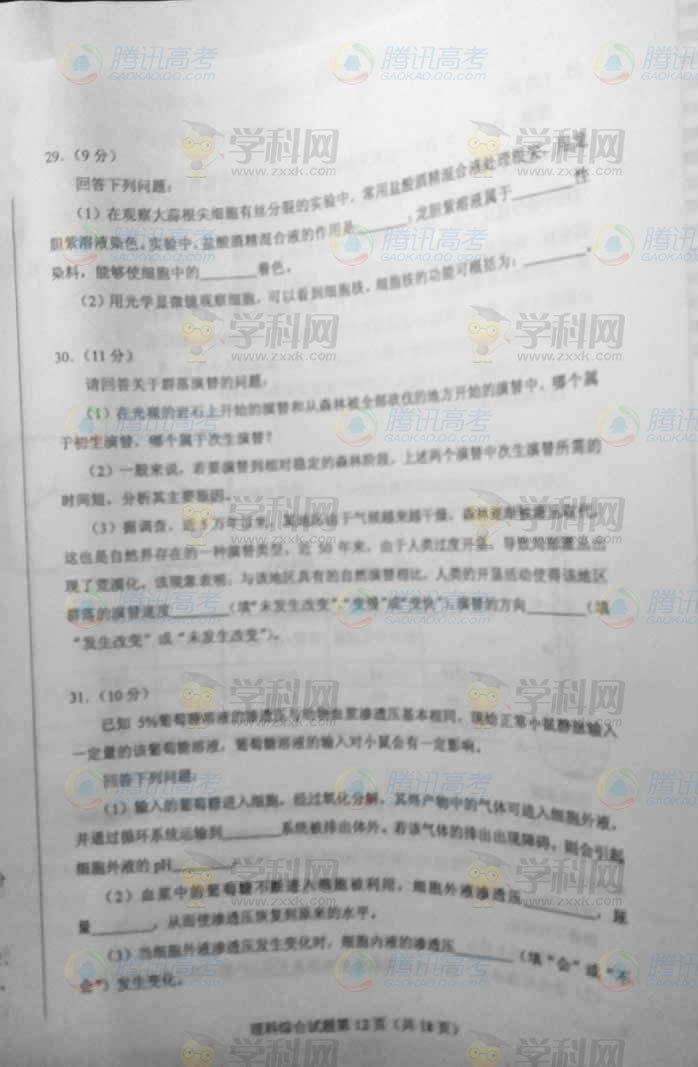 29.（9 分）
回答下列问题：
（1）在观察大蒜根尖细胞有丝分裂的实验中，常用盐酸酒精混合液处理根尖，用龙
胆紫溶液染色。实验中，盐酸酒精混合液的作用是________；龙胆紫溶液属于________性
染料，能够使细胞中的________着色。
（2）用光学显微镜观察细胞，可以看到细胞核，细胞核的功能可概括为：________。
30.（11 分）
请回答关于群落演替的问题：
（1）在光裸的岩石上开始的演替和从森林被全部砍伐的地方开始的演替中，哪个属
于初生演替，哪个属于次生演替？
（2）一般来说，若要演替到相对稳定的森林阶段，上述两个演替中次生演替所需的
时间短，分析其主要原因。
（3）据调查，近 5 万年以来，某地区由于气候越来越干燥，森林逐渐被灌丛取代，
这也是自然界存在的一种演替类型。近 50 年来，由于人类过度开垦，导致局部灌丛出
现了荒漠化。该现象表明：与该地区具有的自然演替相比，人类的开垦活动使得该地区
群落的演替速度________（填“未发生改变”、“变慢”或“变快”），演替的方向________（填
“发生改变”或“未发生改变”）。
31.（10 分）
已知 5%葡萄糖溶液的渗透压与动物血浆渗透压基本相同，现给正常小鼠静脉输入
一定量的该葡萄糖溶液，葡萄糖溶液的输入对小鼠会有一定影响。
回答下列问题：
（1）输入的葡萄糖进入细胞，经过氧化分解，其终产物中的气体可进入细胞外液，
并通过循环系统运输到________系统被排出体外。若该气体的排出出现障碍，则会引起
细胞外液的 pH________。
（2）血浆中的葡萄糖不断进入细胞被利用，细胞外液渗透压________，尿
量________，从而使渗透压恢复到原来的水平。
（3）当细胞外液渗透压发生变化时，细胞内液的渗透压________（填“会”或“不
会”）发生变化。
理科综合试题第 12 页（共 18 页）
腾讯高考
GAOKAO.QQ.COM
学科网
www.zxxk.com